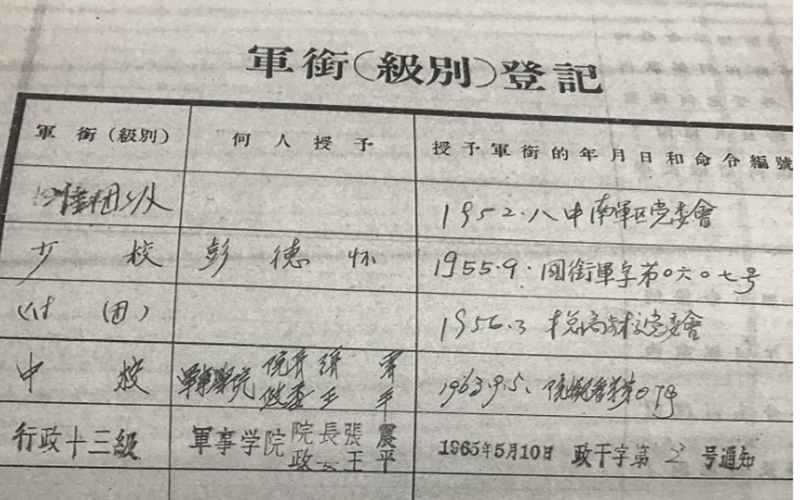 軍銜(級別)登記
軍 銜(級別) 何人授予 授予軍銜的年月日和命令編號
准团以 1952.八中南軍区党委會
少 校 彭 德 怀 1955.9.国銜軍字第〇六〇七号
(付 团) 1956.3 高校党委會
中 校 軍事學院 院長 張 震
政委 王 平 1963.9.5. 字第019
行政十三級 軍事学院 院長張 震
政委王 平 1965年5月10日 政干字第 2 号通知